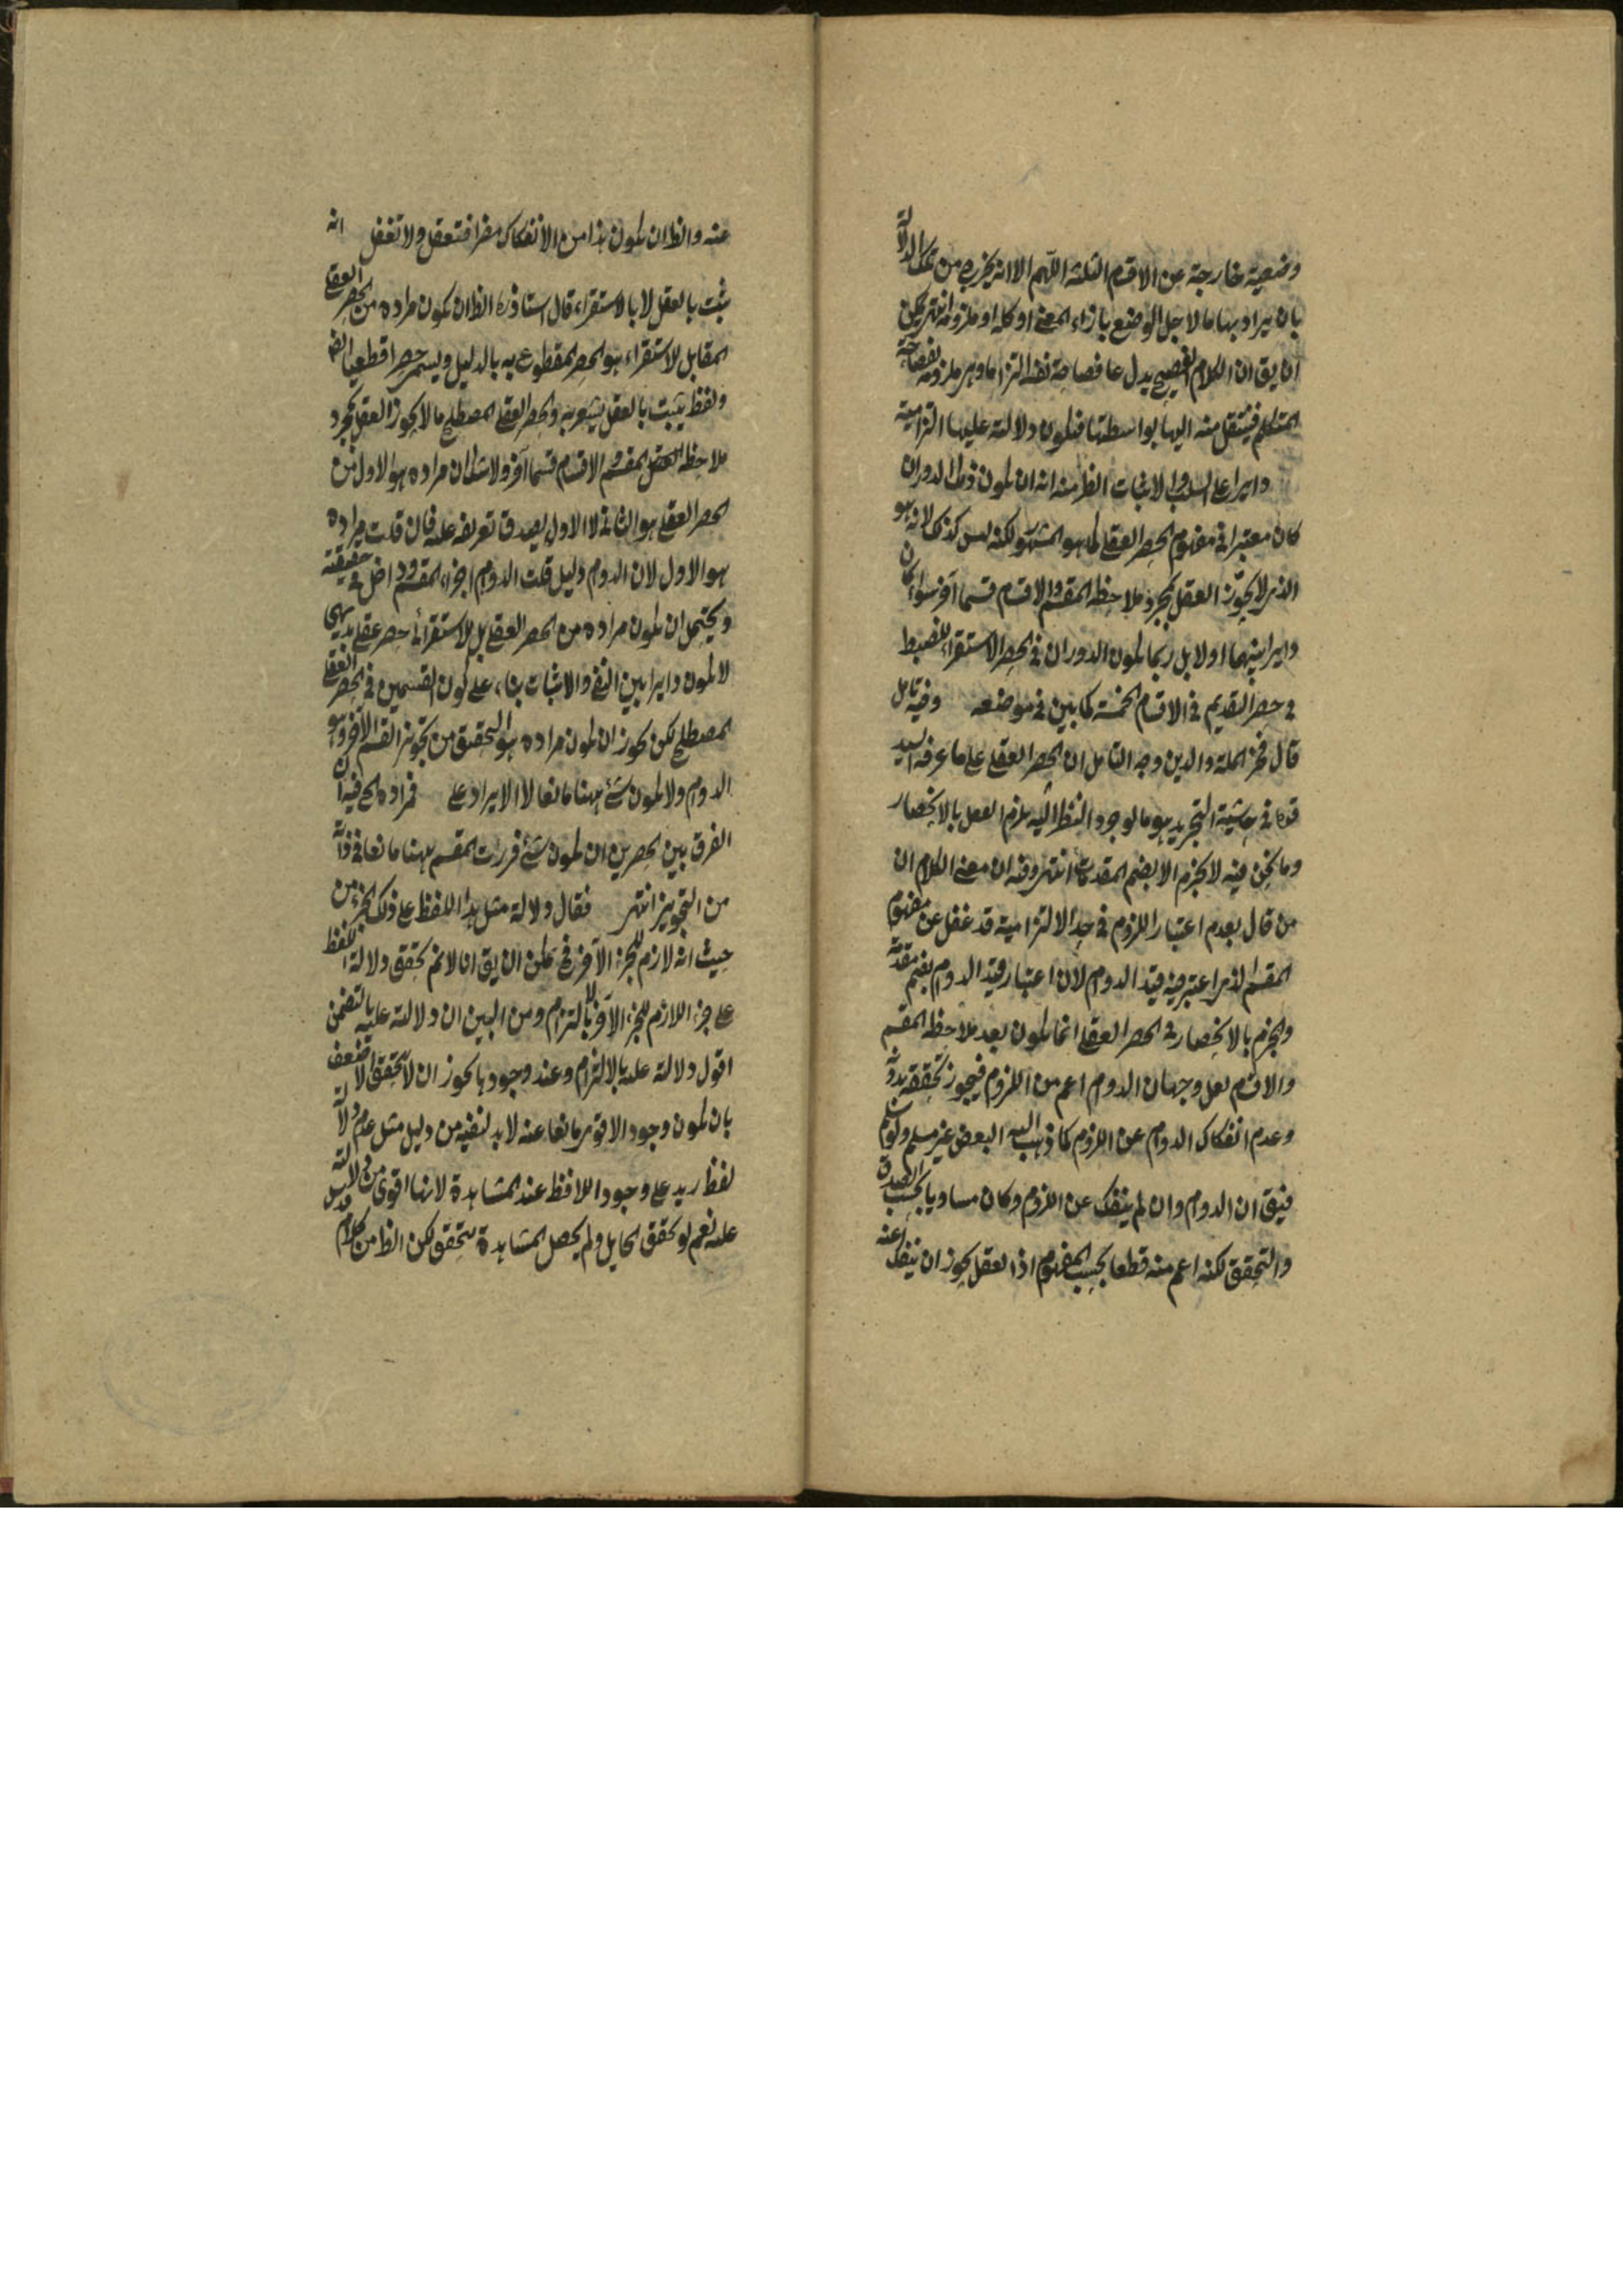 وضعية خارجة عن الاقسام الثلثة اللهم الا انه يخرج من تلك الدلالة
بان يراد بها ما لاجل الوضع بازاء المعنى او كله او ملزومه انتهى يمكن
ان يق ان الكلام الفصيح يدل على فصاحة نفسه التزاما وهى ملزومة لفصاحة
المتكلم فينتقل منه اليها بواسطتها فيكون دلالته عليها التزامية
دايرا على السلب والاثبات الظ منه انه ان يكون ذلك الدوران
كان معتبرا فى مفهوم الحصر العقلى كما هو المشهور لكنه ليس كذلك لانه هو
الذى لا يجوّز العقل بمجرد ملاحظة المقسم والاقسام قسما آخر سواء كان
دايرا بينهما اولا بل ربما يكون الدوران فى الحصر الاستقرائى للضبط
فى حصر التقديم فى الاقسام الخمسة كما بين فى موضعه وفيه تامل
قال فخر الملة والدين وجه التامل ان الحصر العقلى على ما عرفه السيد
قده فى حاشية التجريد هو ما لوجود النظر اليه يلزم العقل بالانحصار
وما نحن فيه لا يجزم الا بضم المقدمات انتهى وفيه ان معنى الكلام ان
من قال بعدم اعتبار اللزوم فى حد الالتزامية قد غفل عن مفهوم
المقسم الذى اعتبر فيه قيد الدوام لان اعتبار قيد الدوام بضم مقدمة
والجزم بالانحصار فى الحصر العقلى انما يكون بعد ملاحظة المقسم
والاقسام لعل وجهه ان الدوام اعم من اللزوم فيجوز تحققه بدونه
وعدم انفكاك الدوام عن اللزوم كما ذهب اليه البعض غير مسلم ولو سلم
فيق ان الدوام وان لم ينفك عن اللزوم وكان مساويا بحسب الصدق
والتحقق لكنه اعم منه قطعا بحسب المفهوم اذ العقل يجوز ان ينفك عنه
عنه والظ ان يكون هذا من الانفكاك مفرا فتعقل ولا تغفل انه
يثبت بالعقل لا بالاستقراء قال استاذى الظ ان يكون مراده من الحصر العقلى
المقابل للاستقراء هو الحصر المقطوع به بالدليل ويسمى حصرا قطعيا ايض
ولفظ يثبت بالعقل يشعر به والحصر العقلى المصطلح ما لا يجوز العقل بمجرد
ملاحظة المقسم والاقسام قسما آخر ولا شك ان مراده هو الاول من
الحصر العقلى هو الثانى لا الاول يصدق تعريفه عليه فان قلت مراده
هو الاول لان الدوام دليل قلت الدوام اجزاء المقسم وداخل فى حقيقته
ويحتمل ان يكون مراده من الحصر العقلى بل الاستقرائى حصر عقلى بديهى
لا يكون دايرا بين النفى والاثبات بناء على كون القسمين فى الحصر العقلى
المصطلح لكن يجوز ان يكون مراده هو التحقيق من تجويز القسم الآخر وهو
الدوام ولا يكون شئ هنا مانعا لا الايراد على فمراده الخ فيه ان
الفرق بين الحصرين ان يكون شئ المقسم هنا مانعا فى ذاته
من التجويز انتهى فقال دلالة مثل هذا اللفظ على ذلك الجزء من
حيث انه لازم للجزء الآخر فح يمكن ان يق انا لا نم تحقق دلالة اللفظ
على جزء اللازم للجزء الآخر بالالتزام ومن البين ان دلالته عليه بالتضمن
اقول دلالته عليه بالالتزام وعند وجودها يجوز ان لا يتحقق الاضعف
بان يكون وجود الاقوى مانعا عنه لا بد لنفيه من دليل مثل عدم دلالة
لفظ زيد على وجود اللافظ عند المشاهدة لانها اقوى من دلالته
عليه نعم لو تحقق الحايل ولم يحصل المشاهدة يتحقق لكن الظ من كلام قدس